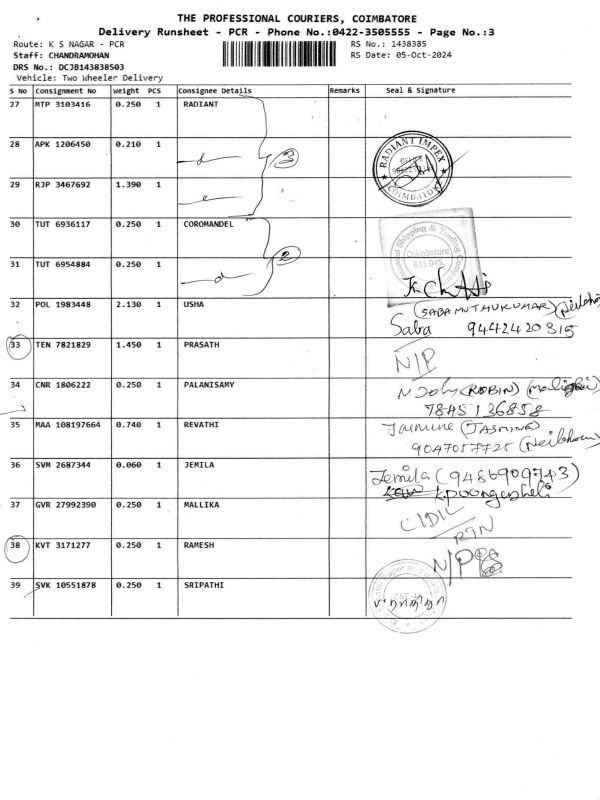 THE PROFESSIONAL COURIERS, COIMBATORE
Delivery Runsheet - PCR - Phone No.:0422-3505555 - Page No.:3
Route: K S NAGAR - PCR RS No.: 1438385
Staff: CHANDRAMOHAN RS Date: 05-Oct-2024
DRS No.: DCJB143838503
Vehicle: Two Wheeler Delivery
S No Consignment No Weight PCS Consignee Details Remarks Seal & Signature
27 MTP 3103416 0.250 1 RADIANT
28 APK 1206450 0.210 1 3 RADIANT IMPEX
29 RJP 3467692 1.390 1 COIMBATORE
30 TUT 6936117 0.250 1 COROMANDEL Shipping & Trading
31 TUT 6954884 0.250 1 2 Coimbatore 641 045
32 POL 1983448 2.130 1 USHA (SABAMUTHUKUMAR)
Saba 9442420315
33 TEN 7821829 1.450 1 PRASATH N/P
34 CNR 1806222 0.250 1 PALANISAMY (ROBIN)
7845136858
35 MAA 108197664 0.740 1 REVATHI Jasmine (JASMINE)
9047057725
36 SVM 2687344 0.060 1 JEMILA Jemila (9486909743)
37 GVR 27992390 0.250 1 MALLIKA
38 KVT 3171277 0.250 1 RAMESH N/P
39 SVK 10551878 0.250 1 SRIPATHI